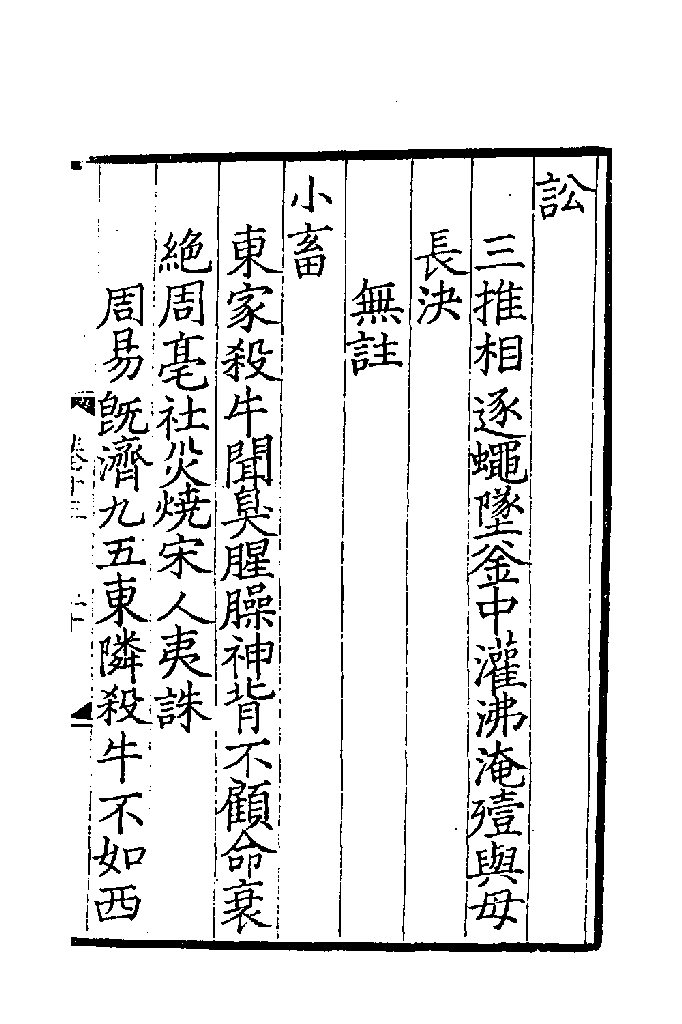 訟
三推相逐蠅墜釜中灌沸淹殪與母
長決
無註
小畜
東家殺牛聞臭腥臊神背不顧命衰
絶周亳社災燒宋人夷誅
周易旣濟九五東隣殺牛不如西
卷十三